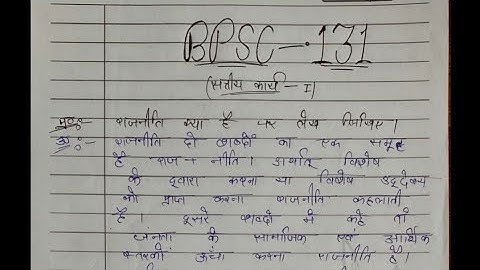 BPSC-131
(सत्रीय कार्य - I)
प्रश्न:- राजनीति क्या है पर लेख लिखिए।
उ०:- राजनीति दो शब्दों का एक समूह
है राज + नीति। अर्थात् विशेष
के द्वारा करना या विशेष उद्देश्य
को प्राप्त करना राजनीति कहलाती
है। दूसरे शब्दों में कहे तो
जनता के सामाजिक एवं आर्थिक
स्तरको ऊंचा करना राजनीति है।